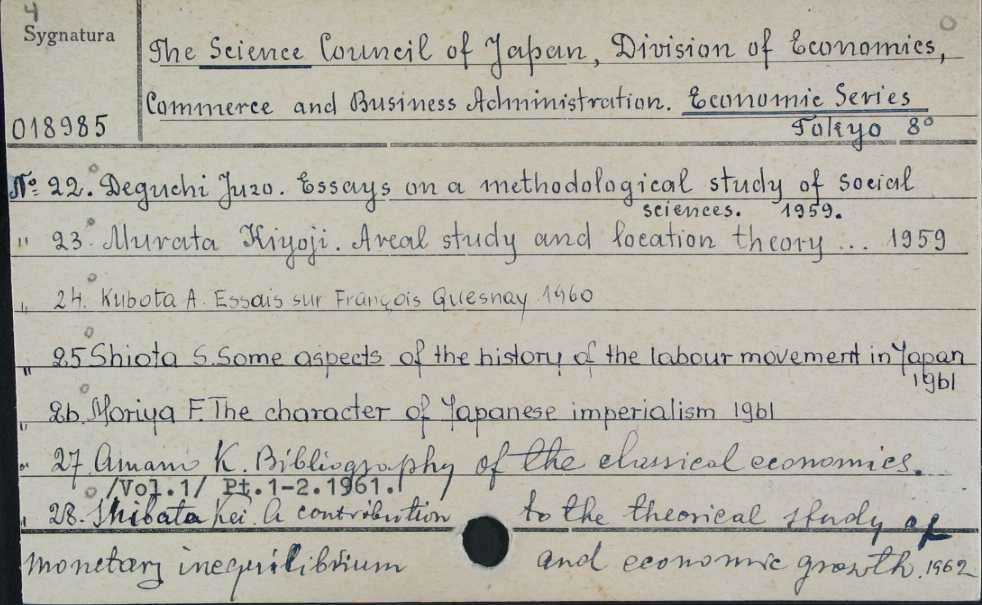 4
Sygnatura
The Science Council of Japan, Division of Economics,
Commerce and Business Administration. Economic Series
018985
Tokyo 8°
№ 22. Deguchi Juzo. Essays on a methodological study of social
sciences. 1959.
" 23. Murata Kiyoji. Areal study and location theory ... 1959
" 24. Kubota A. Essais sur François Quesnay 1960
" 25 Shiota S. Some aspects of the history of the labour movement in Japan
1961
" 26. Moriya F. The character of Japanese imperialism 1961
" 27 Amano K. Bibliography of the classical economics.
/Vol.1/ Pt.1-2.1961.
" 28. Shibata Kei. A contribution to the theorical study of
monetary inequilibrium and economic growth. 1962